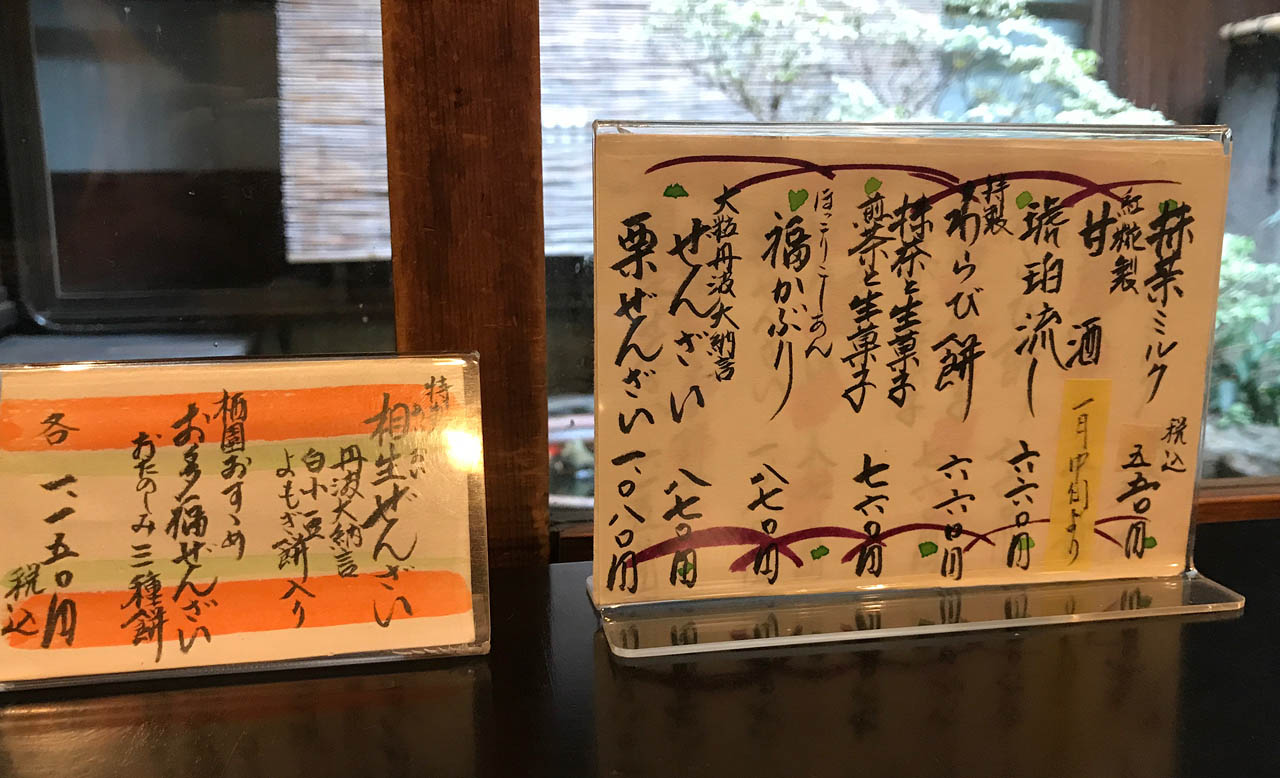 抹茶ミルク 税込 五五〇円
紅糀製
甘酒 一月中旬より
琥珀流し 六六〇円
特製
わらび餅 六六〇円
抹茶と生菓子
煎茶と生菓子 七六〇円
ほっこりこしあん
福かぶり 八七〇円
大粒丹波大納言
ぜんざい 八七〇円
栗ぜんざい 一、〇八〇円
特製
相生ぜんざい
丹波大納言
白小豆
よもぎ餅入り
栖園おすゝめ
お多福ぜんざい
おたのしみ三種餅
各 一、一五〇円
税込